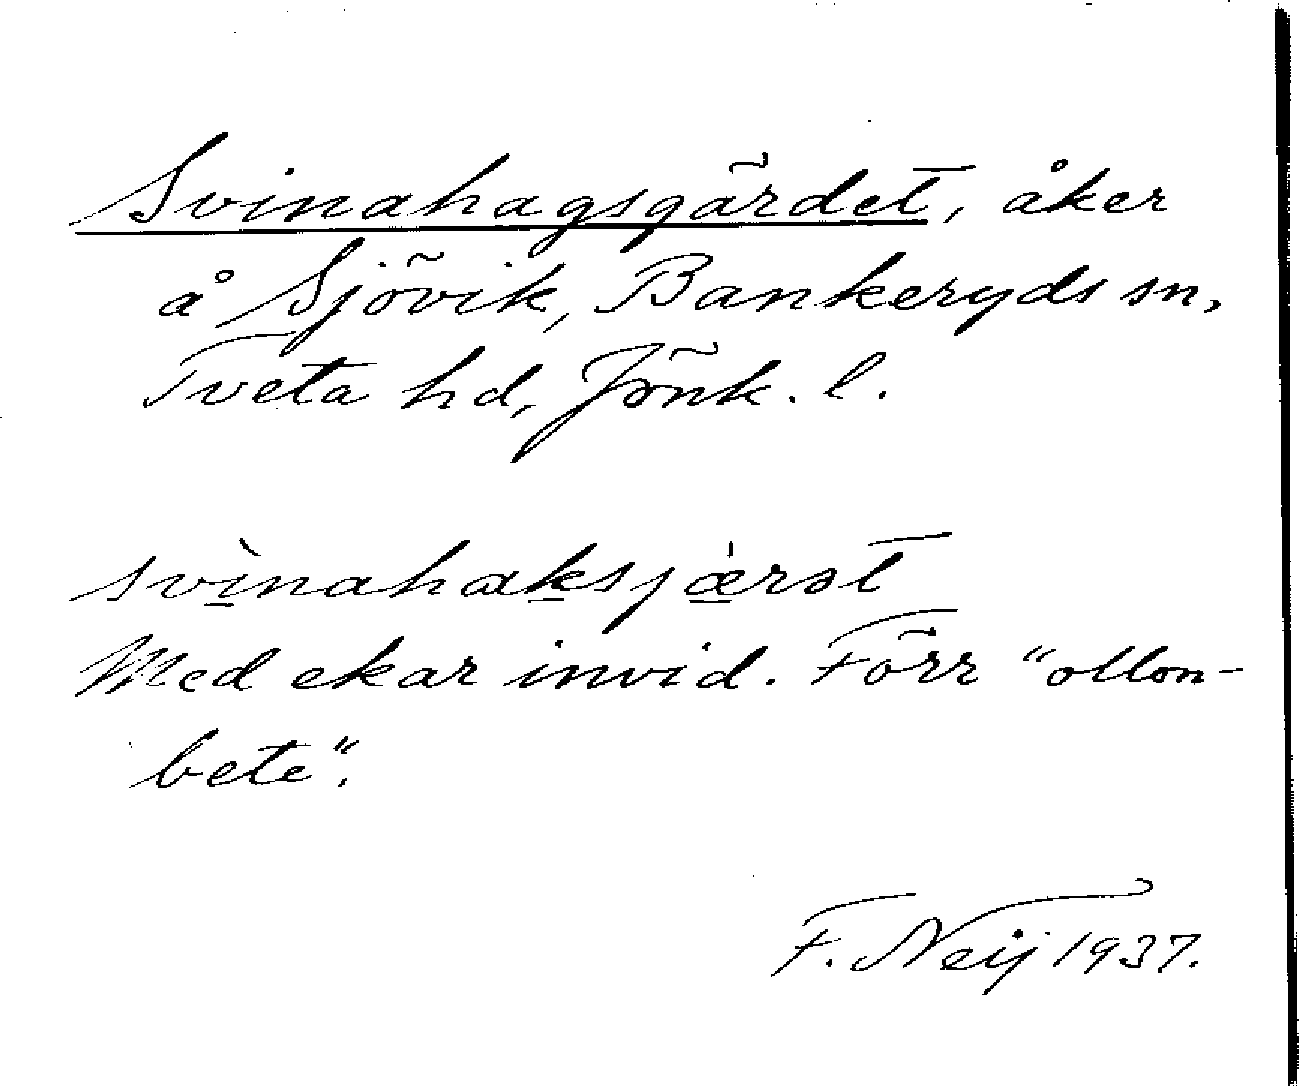 Svinahagsgärdet, åker
å Sjövik, Bankeryds sn,
Tveta hd, Jönk. l.
svìnahaksjæ̀rət
Med ekar invid. Förr "ollon-
bete".
F. Neij 1937.